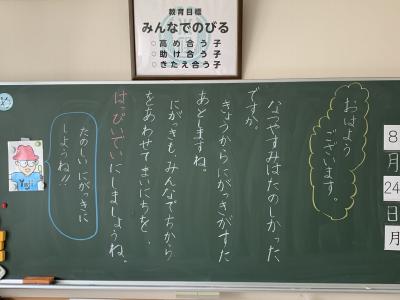 教育目標
みんなでのびる
○高め合う子
○助け合う子
○きたえ合う子
おはよう
ございます。
なつやすみはたのしかった
ですか。
きょうからにがっきがすた
あとしますね。
にがっきも、みんなでちから
をあわせてまいにちを、
はっぴいでいにしましょうね。
たのしいにがっきに
しようね!!
8
月
24
日
月